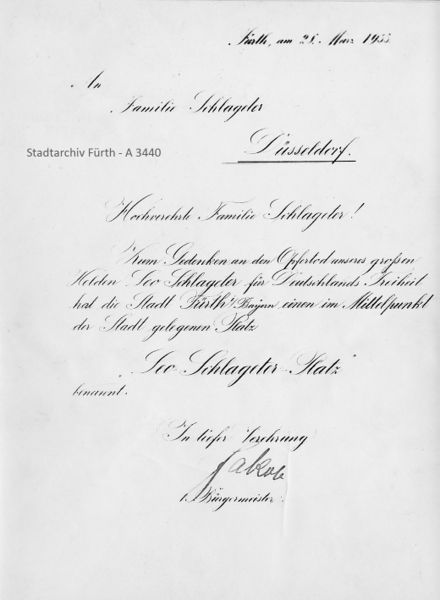 Fürth, am 28. März 1933.
An
Familie Schlageter
Düsseldorf.
Stadtarchiv Fürth - A 3440
Hochverehrte Familie Schlageter!
Zum Gedenken an den Opfertod unseres großen
Helden Leo Schlageter für Deutschlands Freiheit
hat die Stadt Fürth i/Bayern einen im Mittelpunkt
der Stadt gelegenen Platz
"Leo Schlageter-Platz"
benannt.
In tiefer Verehrung
Jakob
1. Bürgermeister.